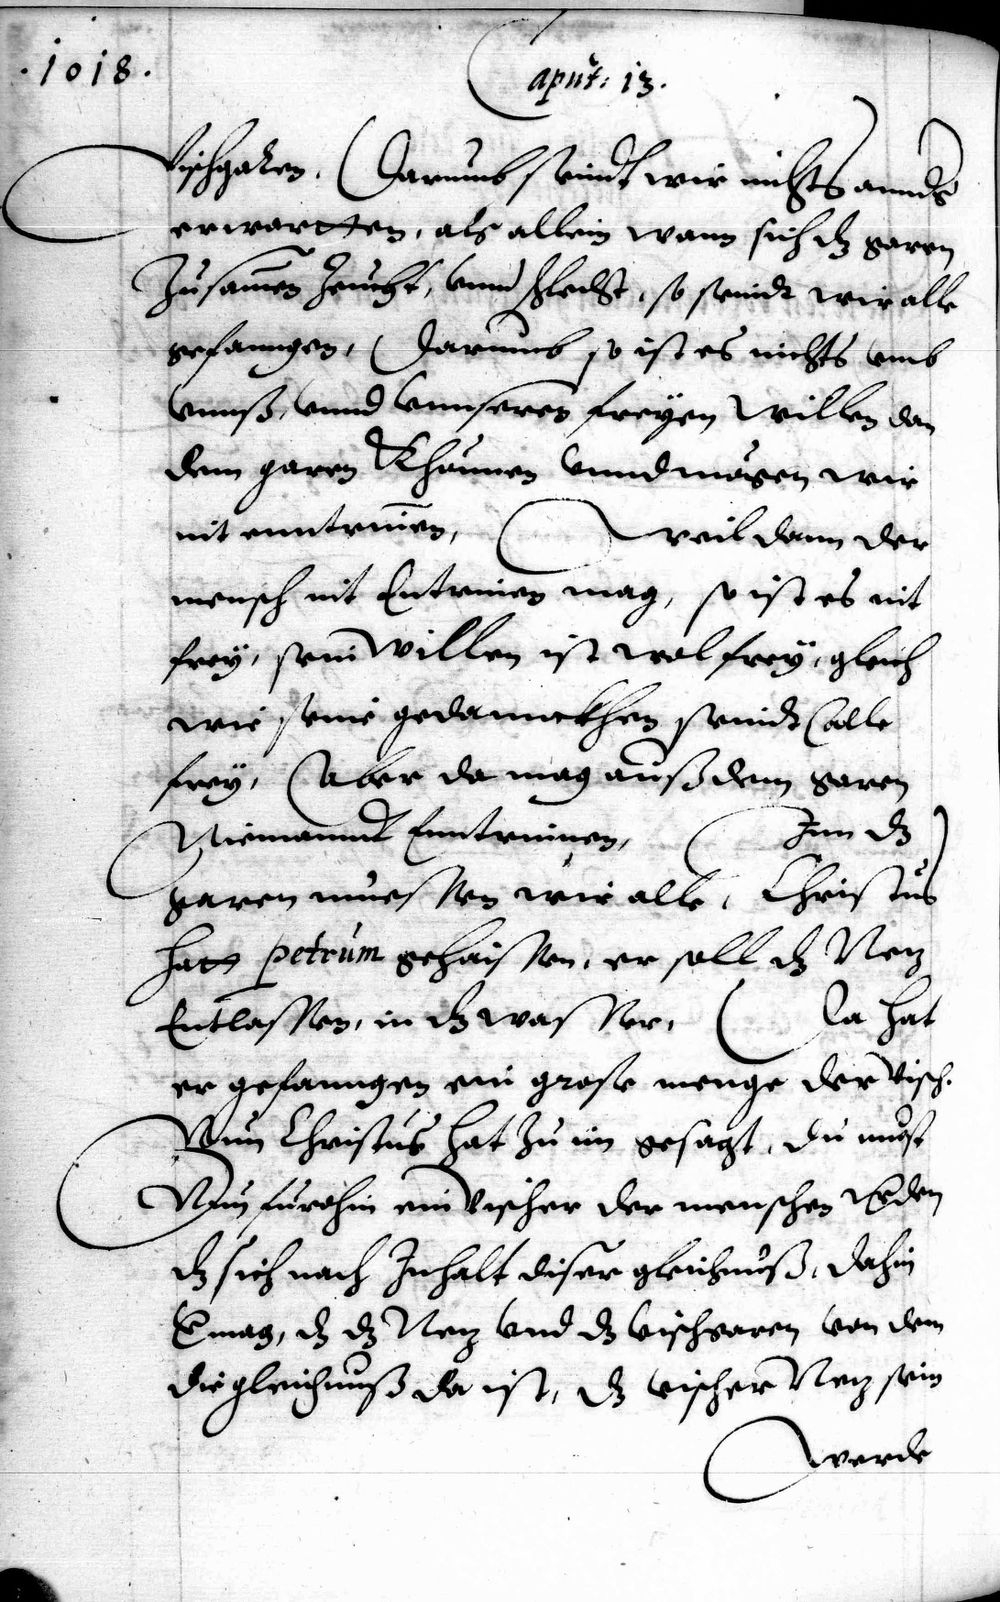 .1018.
Caput: 13.
Vischgaren. Darumb seindt wir nichts annders
erwartten, als allein wann sich dz garen
Zusamen zeucht, vnnd schlecht, so seindt wir alle
gefanngen, Darumb so ist es nichts vmb
vnnß, vnnd vnnseren freyen willen dan
dem garen Khönnen vnnd mögen wir
nit enntrinen, Weil dann der
mensch nit Entrinen mag, so ist es nit
frey, sein willen ist wol frey, gleich
wie seine gedannckhen seindt alle
frey, Aber da mag auß dem garen
Niemanndt Enntrinnen, Jnn dz
garen muessen wir alle, Christus
hatt petrum gehaissen, er soll dz Netz
Entlassen, in dz wasser, Da hat
er gefanngen ein grose menge der Visch.
Nun Christus hat zu im gesagt, du must
Nun furohin ein Vischer der menschen werden
dz sich nach Inhalt diser gleichnuß, dahin
vermag, dz dz Netz vnd dz vischgaren von dem
die gleichnuß da ist, dz vischer Netz sein
werde